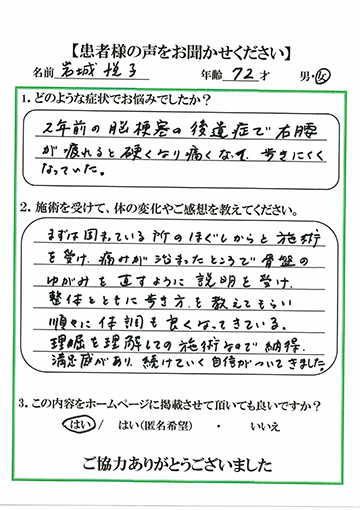 【患者様の声をお聞かせください】
名前 岩城 悦子 年齢 72 才 男・女
1. どのような症状でお悩みでしたか?
2年前の脳梗塞の後遺症で右腰
が疲れると硬くなり痛くなって、歩きにくく
なっていた。
2. 施術を受けて、体の変化やご感想を教えてください。
まずは固まっている所のほぐしからと施術
を受け、痛みが治まったところで骨盤の
ゆがみを直すように説明を受け、
整体とともに歩き方を教えてもらい
順々に体調も良くなってきている。
理屈を理解しての施術なので納得、
満足感があり、続けていく自信がついてきました。
3. この内容をホームページに掲載させて頂いても良いですか?
はい / はい(匿名希望) ・ いいえ
ご協力ありがとうございました